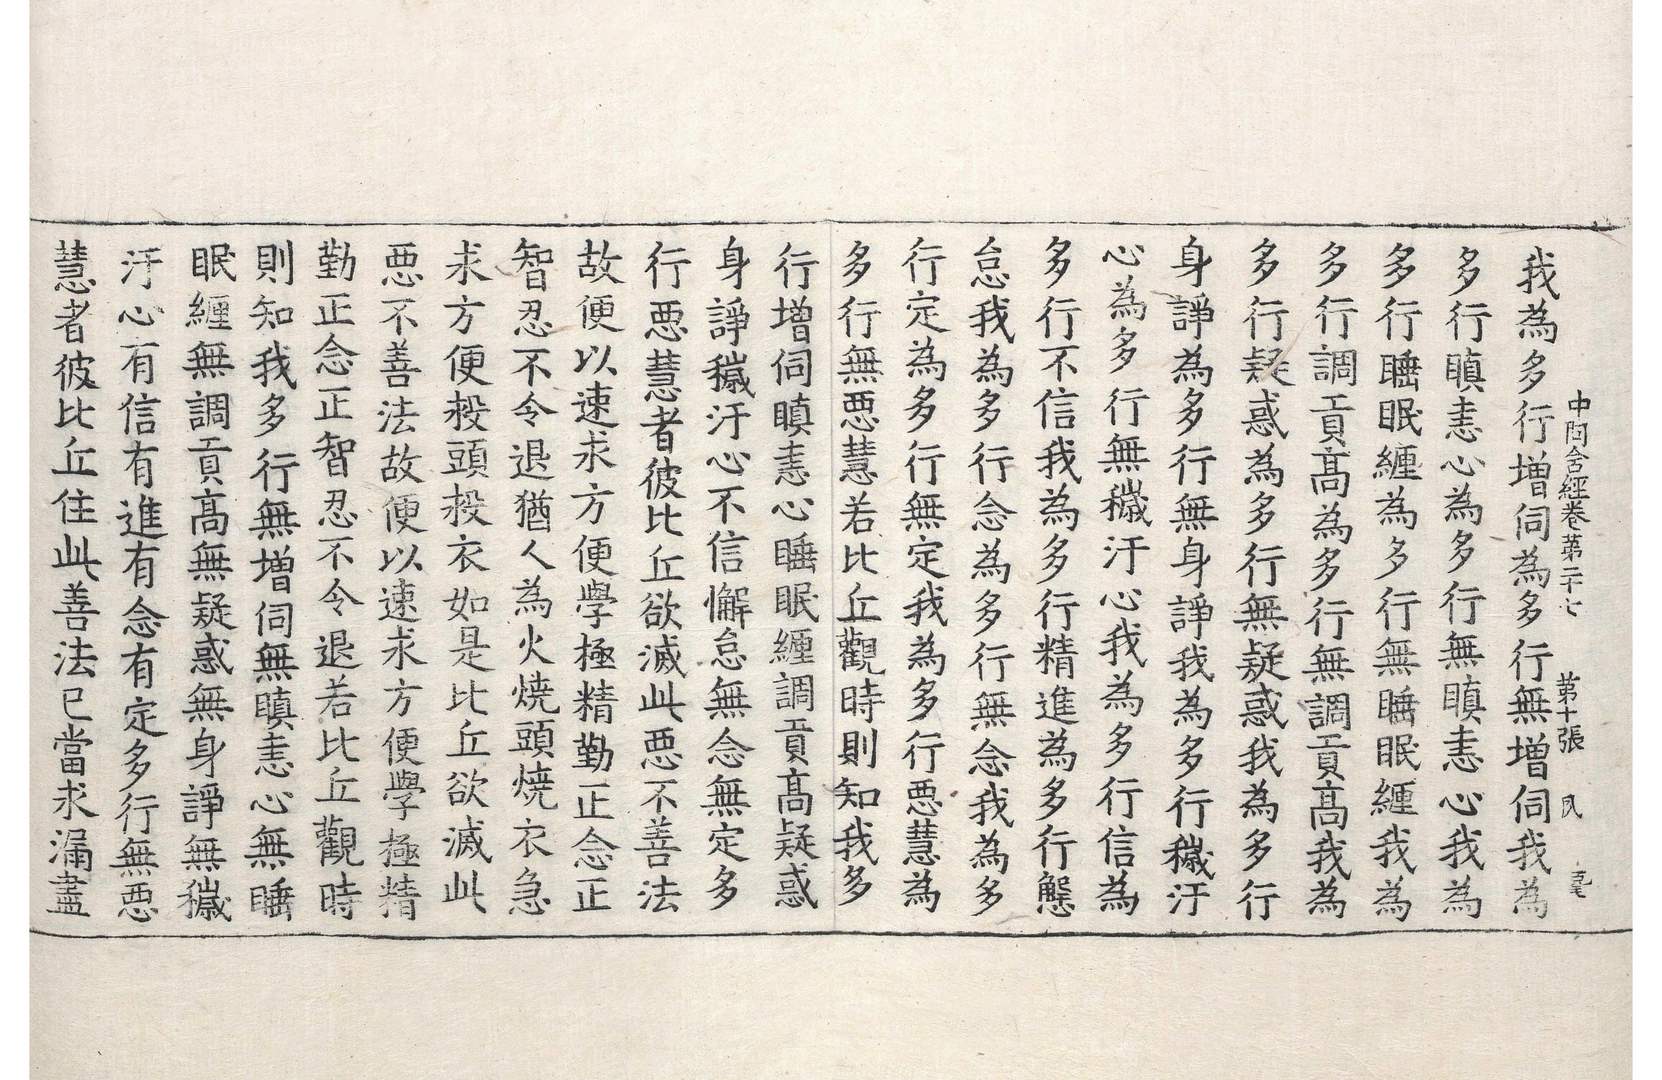 中阿含經卷苐二十七 苐十張
我為多行增伺為多行無增伺我為
多行瞋恚心為多行無瞋恚心我為
多行睡眠纏為多行無睡眠纏我為
多行調貢髙為多行無調貢髙我為
多行疑惑為多行無疑惑我為多行
身諍為多行無身諍我為多行穢汙
心為多行無穢汙心我為多行信為
多行不信我為多行精進為多行懈
怠我為多行念為多行無念我為多
行定為多行無定我為多行悪慧為
多行無悪慧若比丘觀時則知我多
行增伺瞋恚心睡眠纏調貢髙疑惑
身諍穢汙心不信懈怠無念無定多
行悪慧者彼比丘欲滅此悪不善法
故便以速求方便學極精勤正念正
智忍不令退猶人為火燒頭燒衣急
求方便救頭救衣如是比丘欲滅此
悪不善法故便以速求方便學極精
勤正念正智忍不令退若比丘觀時
則知我多行無增伺無瞋恚心無睡
眠纏無調貢髙無疑惑無身諍無穢
汙心有信有進有念有定多行無悪
慧者彼比丘住此善法已當求漏盡